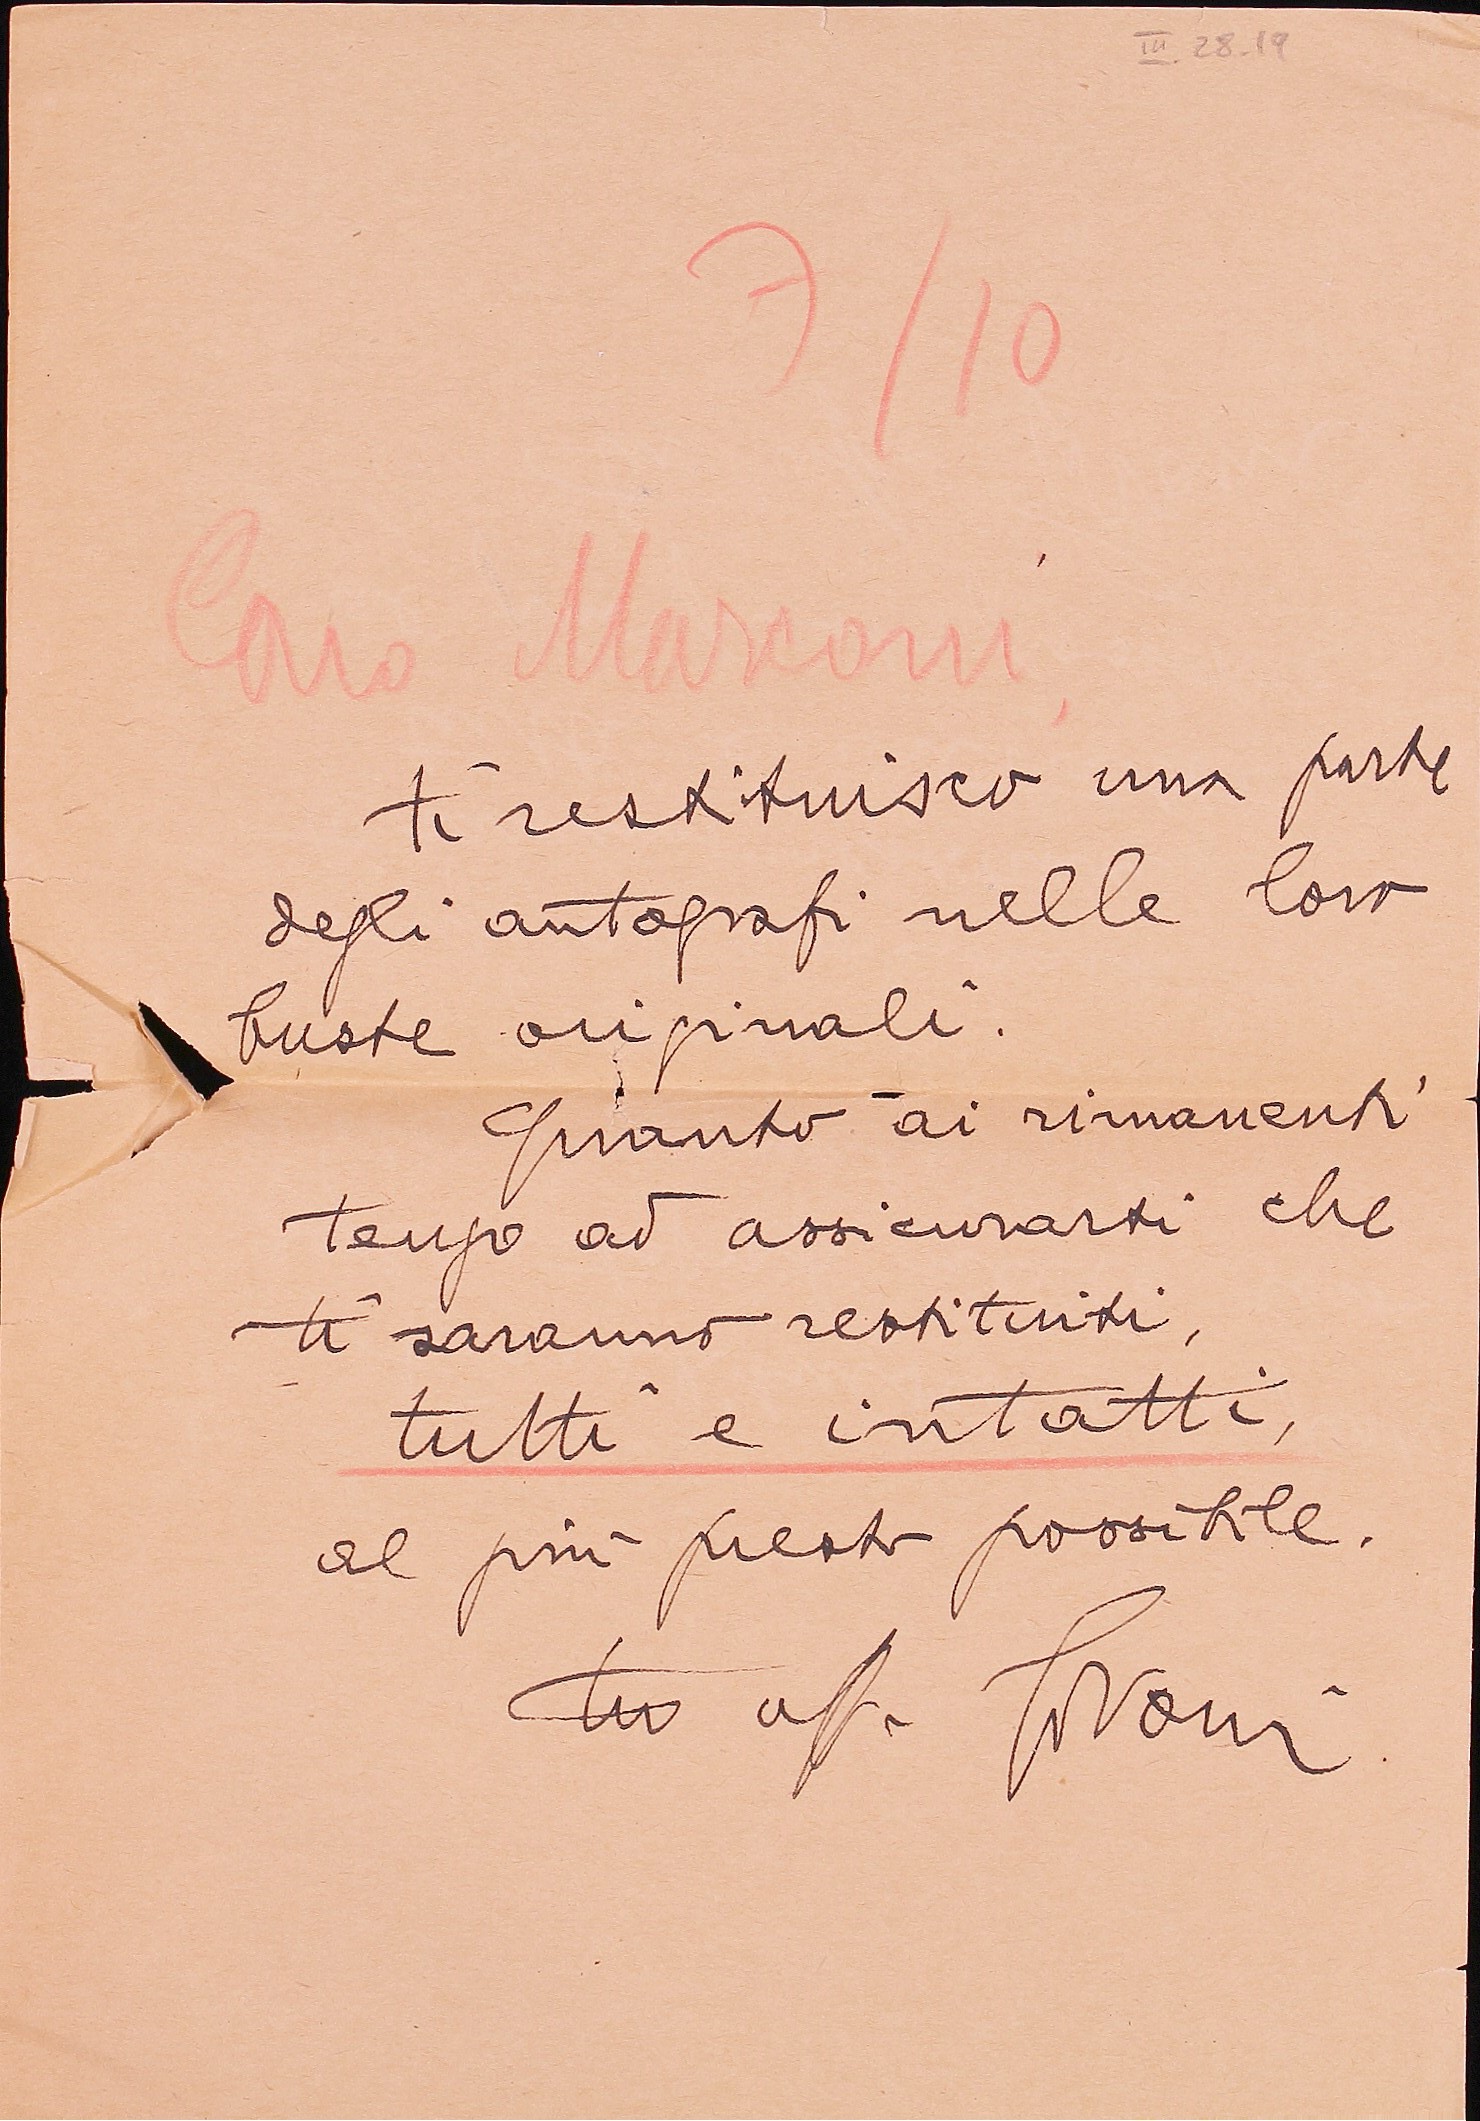 III. 28.19
7/10
Caro Marconi,
ti restituisco una parte
degli autografi nelle loro
buste originali.
Quanto ai rimanenti
tengo ad assicurarti che
ti saranno restituiti,
tutti e intatti,
al più presto possibile.
tuo aff.